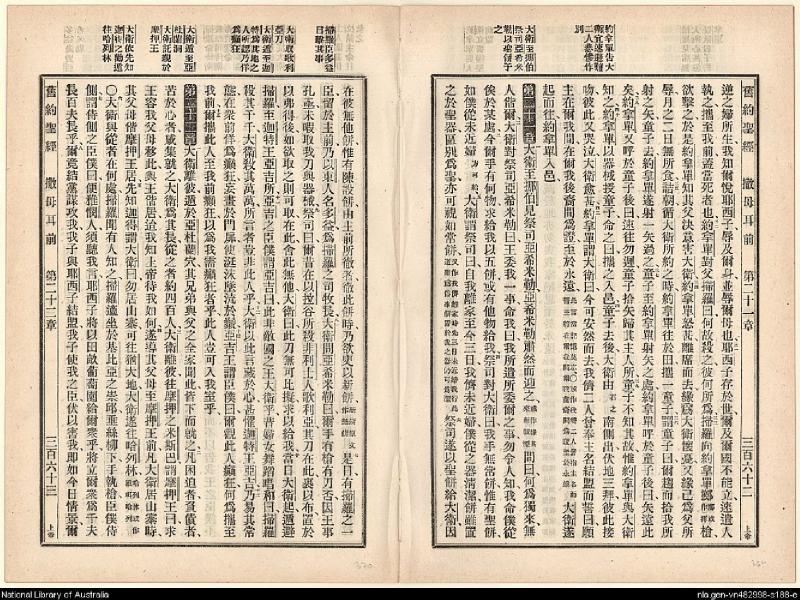 約拿單告大
衛宜速避難
二人泣別
大衛至挪伯
祭司亞希米
勒以聖餅予
之
舊約聖經 撒母耳前 第二十一章 三百六十二 上帝
逆之婦所生我知爾悅耶西子辱及爾身並辱爾母也耶西子存於世爾及爾國不能立速遣人
執之攜至我前蓋當死者也約拿單對父掃羅曰何故殺之彼何所爲掃羅向約拿單擲槍
欲擊之於是約拿單知其父決意害大衛約拿單怒甚離席而去緣竊大衛懷憂又緣己爲父所
辱月之二日無所食詰朝循大衛所約之時約拿單往於田攜一童子謂童子曰爾趨而拾我所
射之矢童子去約拿單遂射一矢過之童子至約拿單射矢之處約拿單呼於童子後曰矢遠此
矣約拿單又呼於童子後曰速往勿遲童子拾矢歸其主人所童子不知其故惟約拿單與大衛
知之約拿單以器械授童子命之曰攜之入邑童子去後大衛由 南側出伏地三拜彼此接
吻彼此又哭泣大衛愈甚約拿單謂大衛曰今可安然而去我儕二人曾奉主名結盟而誓曰願
主在爾我間在爾我後裔間爲證至於永遠 大衛遂
起而往約拿單入邑
第二十一章大衛至挪伯見祭司亞希米勒亞希米勒肅然而迎之 問曰何爲獨來無
人偕爾大衛對祭司亞希米勒曰王委我一事命我曰我所遣所委爾之事勿令人知我命僕從
俟於某處今爾手有何物求給我以五餅或有他物給我祭司對大衛曰我手無常餅惟有聖餅
如僕從未近婦 大衛謂祭司曰自我離家至今三日我儕未近婦僕從之器清潔餅雖置
之於聖器區別爲聖亦可視如常餅 祭司遂以聖餅給大衛因
掃羅臣多益
目睹其事
大衛取歌利
亞刀
大衛至迦
特爲其地之
人所認乃佯
爲癲狂
大衛遁至亞
杜蘭洞
大衛託親於
摩押王
大衛依先知
迦得之勸遁
往哈列林
在彼無他餅惟有陳設餅由主前所徹者徹此餅時乃欲更以新餅 是日有掃羅之一
臣留於主前乃以東人名多益爲掃羅之司牧長大衛問亞希米勒曰爾手有槍有刀否因王事
孔亟未暇取我刀與器械祭司曰爾昔在以拉谷所殺非利士人歌利亞其刀在此裹以布置於
以弗得後如欲取之則可取在此舍此無他大衛曰此刀無可比擬求以給我當日大衛起遁避
掃羅至迦特王亞吉所亞吉之臣僕謂亞吉曰此非斯國之王大衛乎昔婦女舞蹈唱和曰掃羅
殺其千千大衛殺其萬萬所言者豈非此人乎大衛以此言藏於心甚懼迦特王亞吉乃易其常
態在衆前佯爲癲狂妄畫於門扉使涎沫歷流於鬚亞吉王謂臣僕曰爾觀此人癲狂何爲攜至
我前爾攜此人至我前癲狂以爲我需癲狂者乎此人豈可入我室乎
第二十二章大衛離彼遁於亞杜蘭穴其兄弟與父之全家聞此皆下而就之凡困迫者負債者
苦於心者咸集就之大衛爲其長從之者約四百人大衛離彼往摩押之米斯巴謂摩押王曰求
王容我父母移此與王偕居迨我知上帝待我如何遂引其父母至摩押王前凡大衛居山寨時
其父母偕摩押王居先知迦得謂大衛曰勿居山寨可往猶大地大衛遂往哈列林
〇大衛與從者在何處掃羅聞有人知之掃羅適坐於基比亞之崇邱垂絲柳下手執槍臣僕侍
側謂侍側之臣僕曰便雅憫人須聽我言耶西子將以田畝葡萄園給爾衆乎將立爾衆爲千夫
長百夫長乎爾竟結黨謀攻我我子與耶西子結盟我子使我之臣伏以害我即如今日情景爾
舊約聖經 撒母耳前 第二十二章 三百六十三 上帝
National Library of Australia
nla.gen-vn482998-s188-e